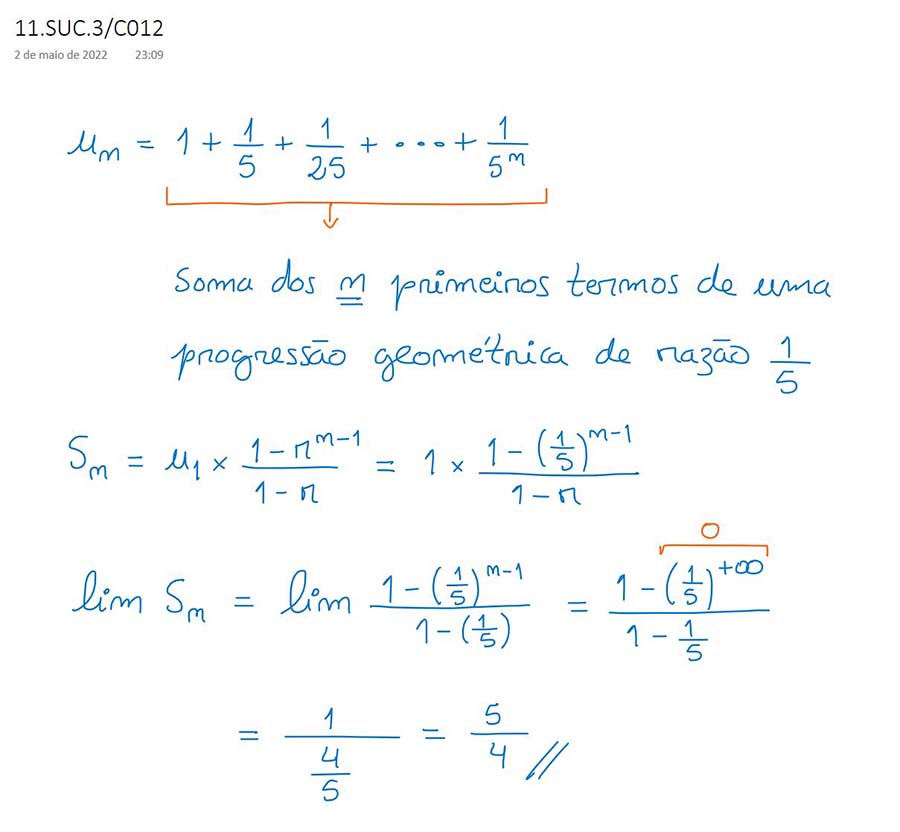 11.SUC.3/C012
2 de maio de 2022 23:09
uₙ = 1 + 1/5 + 1/25 + ....+ 1/5ⁿ
Soma dos n primeiros termos de uma
progressão geométrica de razão 1/5
Sₙ = u₁ × (1 - rⁿ⁻¹)/(1 - r) = 1 × (1 - (1/5)ⁿ⁻¹)/(1 - r)
0
lim Sₙ = lim (1 - (1/5)ⁿ⁻¹)/(1 - (1/5)) = (1 - (1/5)^+∞)/(1 - 1/5)
= 1/(4/5) = 5/4 //